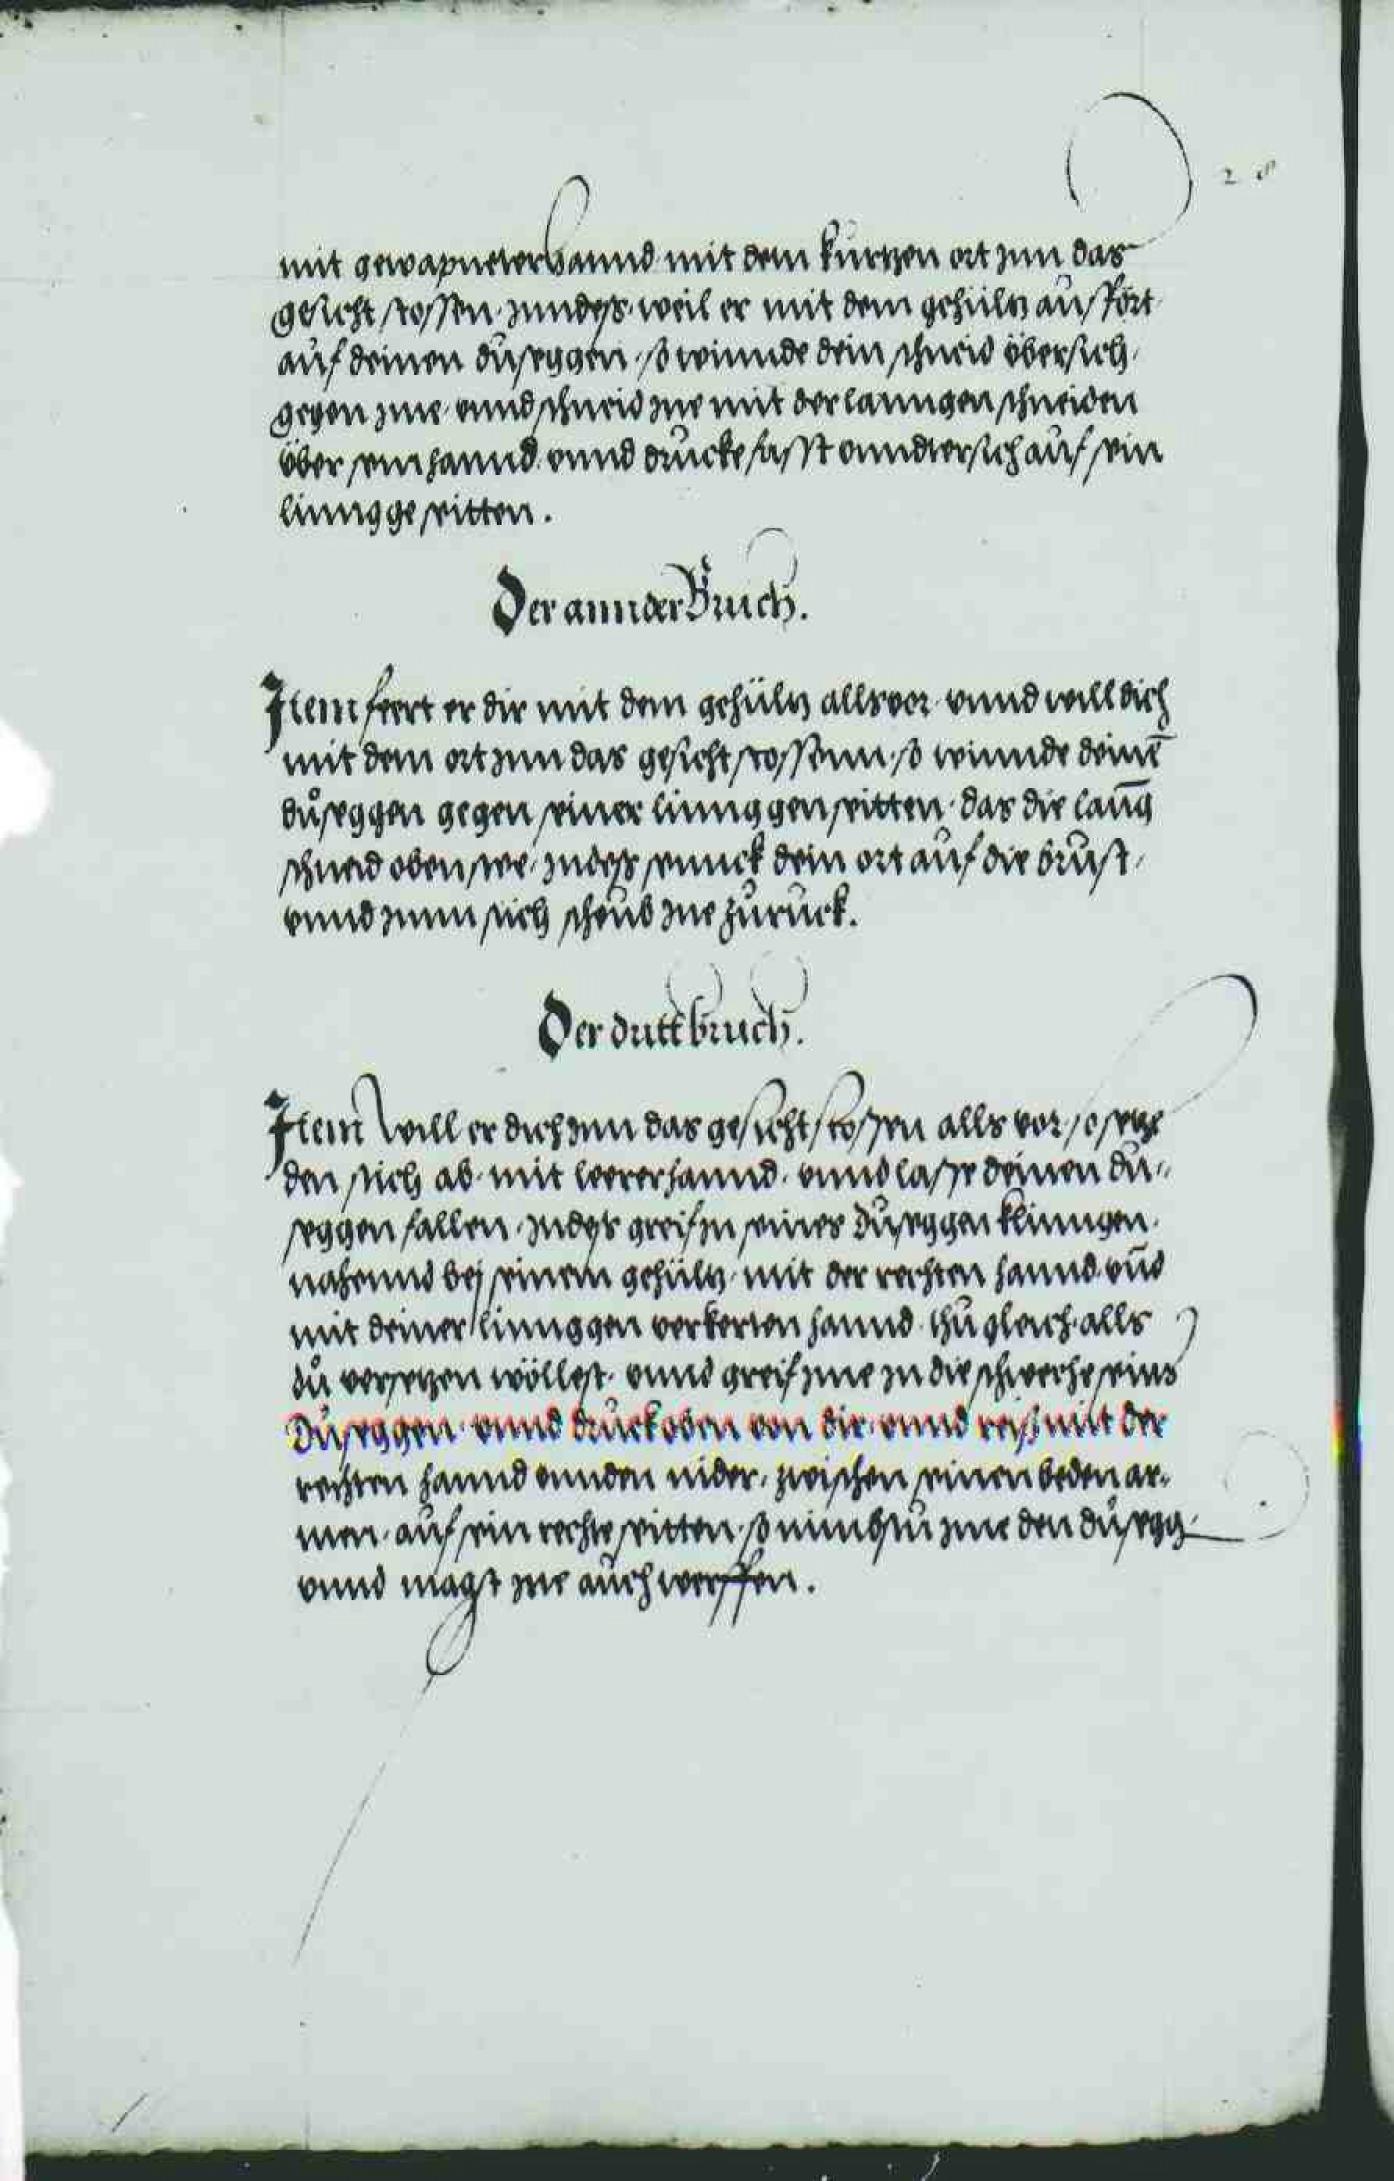 28
mit gewapneter hannd mit dem kurtzen ort jnn das
gesicht stossen, jnndes, weil er mit dem gehültz ausfört
auf deinen dusêggen, so winnde dein schneid übersich,
gegen jme, vnnd schneid jme mit der lanngen schneiden
über sein hannd, vnnd drucke fasst vnndtersich auf sein
linngge seitten.
Der annder Bruch.
Item feert er dir mit dem gehültz alls vor, vnnd will dich
mit dem ort jnn das gesicht stossenn, so winnde deinē
duseggen gegen seiner linnggen seitten, das die lanng
schneid oben stee, jndes sennck dein ort auf die brust,
vnnd jnn stich scheub jne zuruck.
Der dritt bruch.
Item will er dich jnn das gesicht stossen alls vor, so setze
den stich ab, mit leerer hannd, vnnd lasse deinen du=
seggen fallen, jndes greif jn seines duseggen klinngen,
nahennd bej seinem gehültz, mit der rechten hannd, vnd
mit deiner linnggen verkerten hannd, thu gleich, alls
du versetzen wöllest, vnnd greif jme jn die schweche seins
Duseggen, vnnd druck oben von dir, vnnd reiss mit der
rechten hannd vnnden nider, zwischen seinen beden ar=
men, auf sein rechte seitten, so nimbstu jme den dusegg,
vnnd magst jne auch werffen.